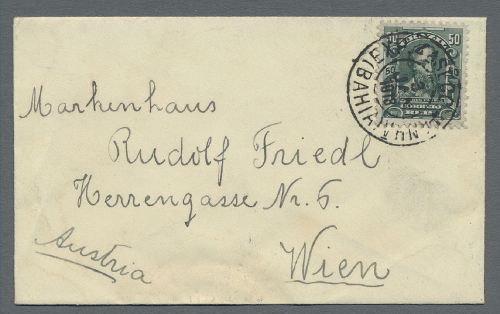 50
(BAHIA)
Markenhaus
Rudolf Friedl
Herrengasse Nr. 6.
Wien
Austria